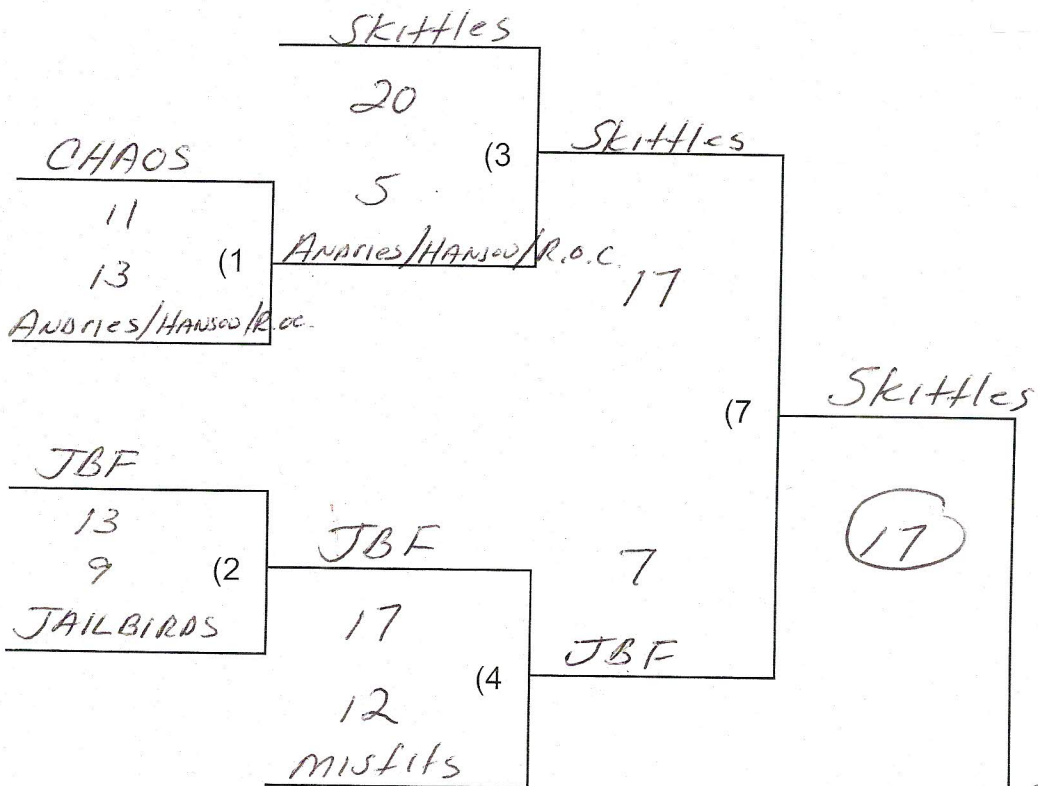 Skittles
20
(3
5
Andries/Hanson/R.O.C.
CHAOS
11
(1
13
Andries/Hanson/R.OC.
Skittles
17
(7
7
JBF
JBF
13
9
(2
JAILBIRDS
JBF
17
(4
12
misfits
Skittles
17